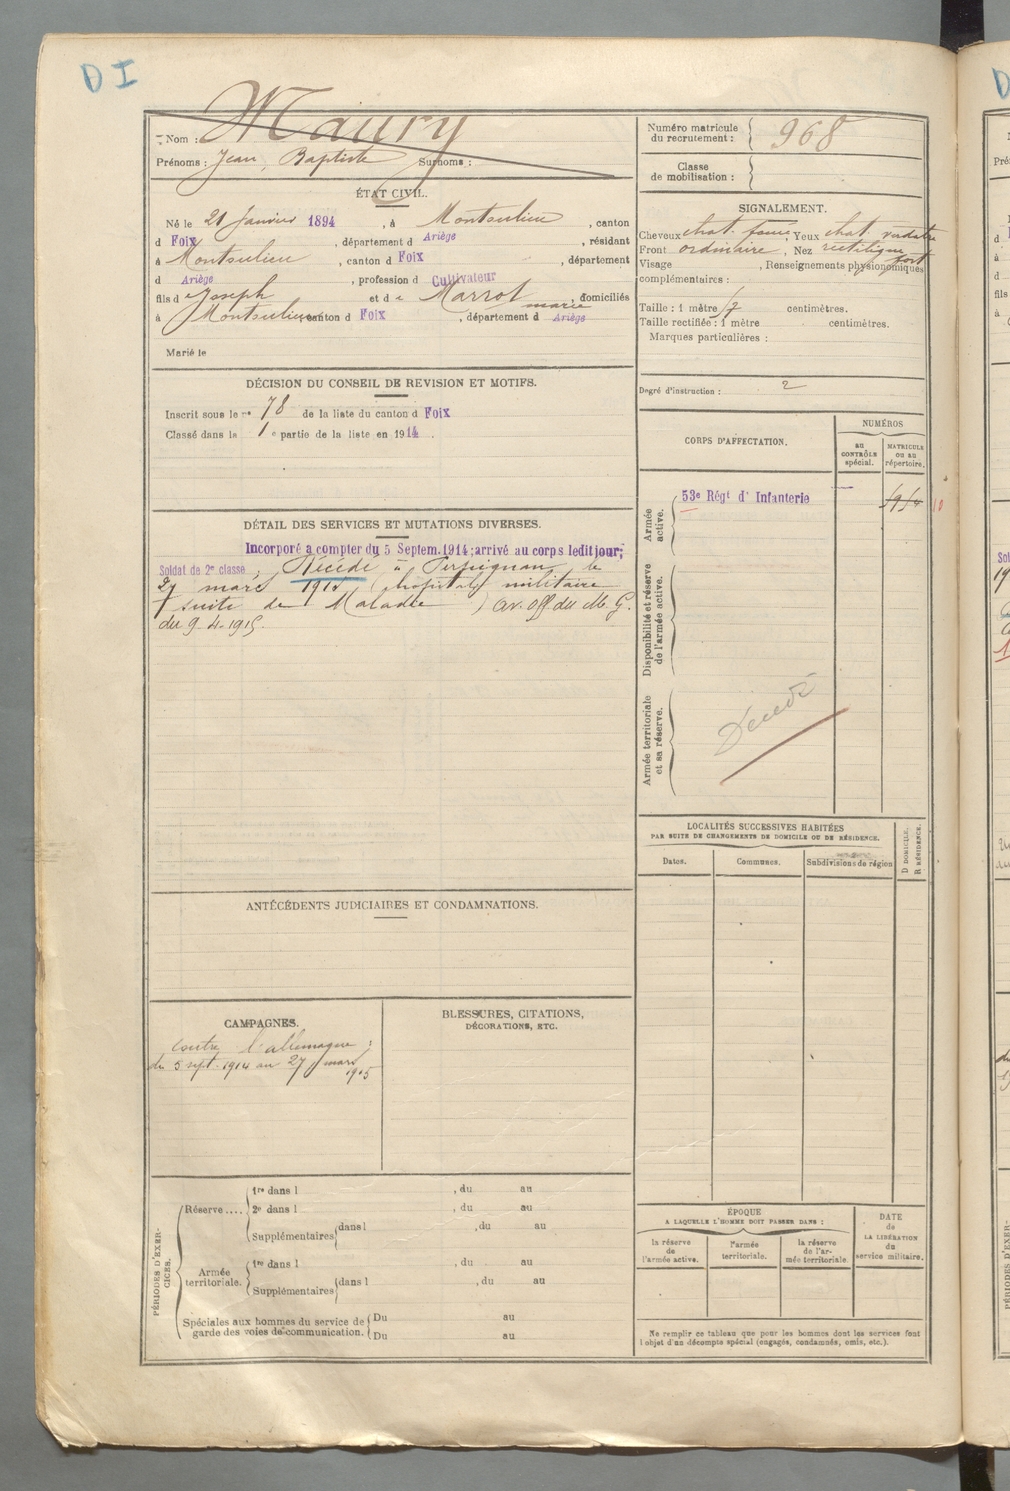 D I
Nom : Maury
Prénoms : Jean, Baptiste Surnoms :
Numéro matricule
du recrutement : 968
Classe
de mobilisation :
ÉTAT CIVIL.
Né le 21 Janvier 1894, à Montoulieu, canton
d Foix, département d Ariège, résidant
à Montoulieu, canton d Foix, département
d Ariège, profession d Cultivateur
fils de Joseph et de Marrot marie, domiciliés
à Montoulieu canton d Foix, département d Ariège
Marié le
SIGNALEMENT.
Cheveux chat. Yeux chat. verdatre
Front ordinaire, Nez rectiligne fort
Visage , Renseignements physionomiques
complémentaires :
Taille : 1 mètre centimètres.
Taille rectifiée : 1 mètre centimètres.
Marques particulières :
Degré d'instruction : 2
DÉCISION DU CONSEIL DE REVISION ET MOTIFS.
Inscrit sous le n° 78 de la liste du canton d Foix
Classé dans la 1e partie de la liste en 1914.
CORPS D'AFFECTATION.
NUMÉROS
au
CONTRÔLE
spécial.
MATRICULE
ou au
répertoire.
Armée
active.
53e Régt d' Infanterie
Disponibilité et réserve
de l'armée active.
Armée territoriale
et sa réserve.
Décédé
DÉTAIL DES SERVICES ET MUTATIONS DIVERSES.
Incorporé à compter du 5 Septem. 1914; arrivé au corps ledit jour;
Soldat de 2e classe; Décédé à Perpignan le
27 mars 1915 (hopital militaire
suite de Maladie) av. off du M. G.
du 9-4-1915.
LOCALITÉS SUCCESSIVES HABITÉES
PAR SUITE DE CHANGEMENTS DE DOMICILE OU DE RÉSIDENCE.
Dates.
Communes.
Subdivisions de région
D DOMICILE.
R RÉSIDENCE.
ANTÉCÉDENTS JUDICIAIRES ET CONDAMNATIONS.
CAMPAGNES.
Contre l'allemagne :
du 5 sept. 1914 au 27 mars
1915
BLESSURES, CITATIONS,
DÉCORATIONS, ETC.
PÉRIODES D'EXER-
CICES.
Réserve....
1re dans l , du au
2e dans l , du au
Supplémentaires dans l , du au
Armée
territoriale.
1re dans l , du au
Supplémentaires dans l , du au
Spéciales aux hommes du service de
garde des voies de communication.
Du au
Du au
ÉPOQUE
A LAQUELLE L'HOMME DOIT PASSER DANS :
la réserve
de
l'armée active.
l'armée
territoriale.
la réserve
de l'ar-
mée territoriale
DATE
de
LA LIBÉRATION
du
service militaire.
Ne remplir ce tableau que pour les hommes dont les services font
l'objet d'un décompte spécial (engagés, condamnés, omis, etc.).